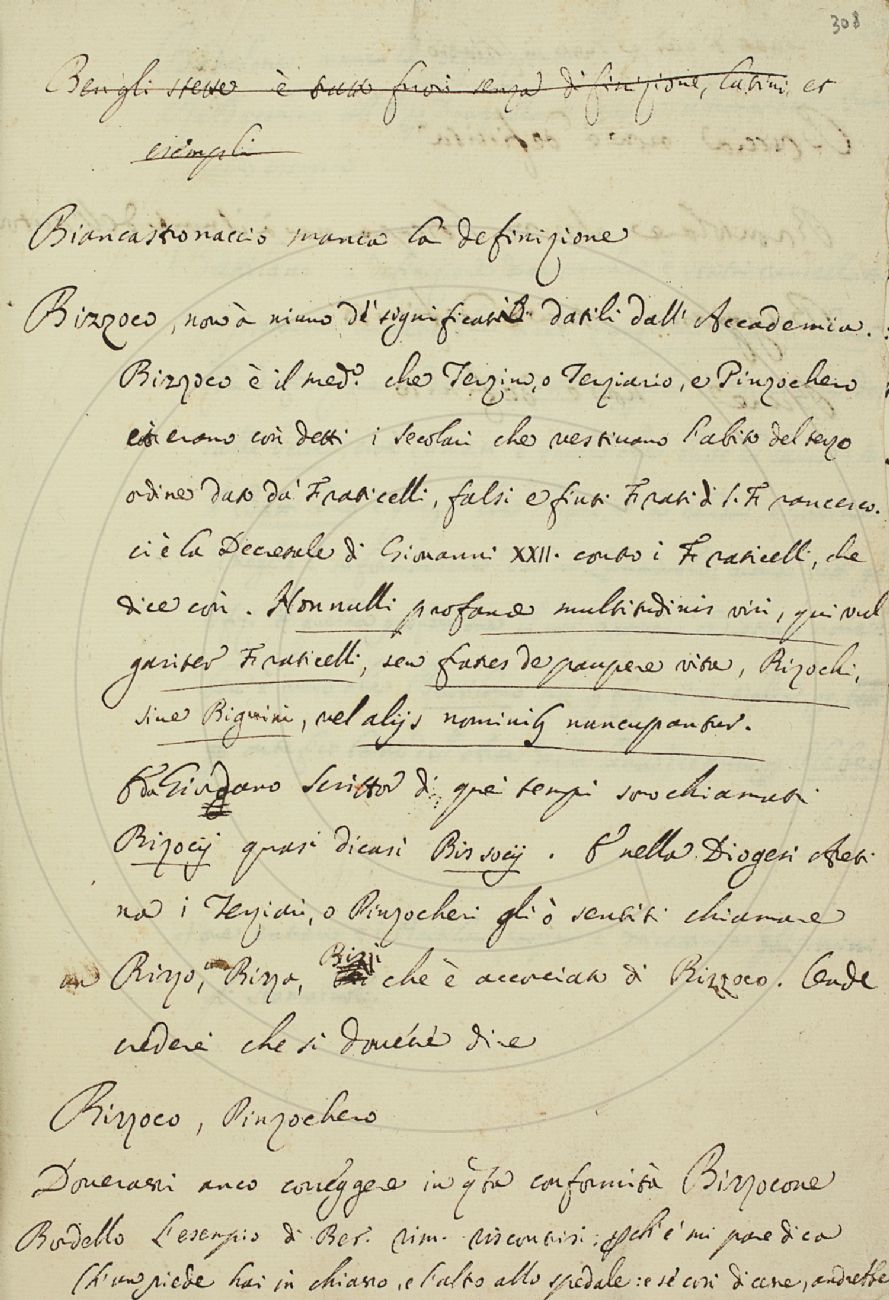 308
Ben gli stette è tutto fuori senza difinizione, latini, et
esempli
Biancastronaccio manca la definizione
Bizzoco, non à niuno de' significati datili dall' Accademia.
Bizzoco è il med.o che Terzino, o Terziario, e Pinzochero
erano così detti i secolari che vestivano l'abito del terzo
ordine dato da' Fraticelli, falsi e finti Frati di S. Francesco.
ci è la Decretale di Giovanni XXII. contro i Fraticelli, che
dice così. Nonnulli profanæ multitudinis viri, qui vul
gariter Fraticelli, seu fratres de paupere vita, Bizochi,
sive Biguini, vel alijs nominibq nuncupantur.
E da Giordano Scrittor di quei tempi sono chiamati
Bizocij quasi dicasi Bissocij. E nella Diogesi Areti
na i Terziari, o Pinzocheri gli ò sentiti chiamare
un Bizzo, una Bizza, Bizzi che è accorciato di Bizzoco. Onde
crederei che si dovesse dire
Bizzoco, Pinzochero
Doverassi anco correggere in qsta conformità Bizzocone
Bordello l'esempio di Ber. rim. riscontrisi: pchè e' mi pare dica
L'un piede hai in chiasso, e l'altro allo spedale: e se così dicesse, andrebbe